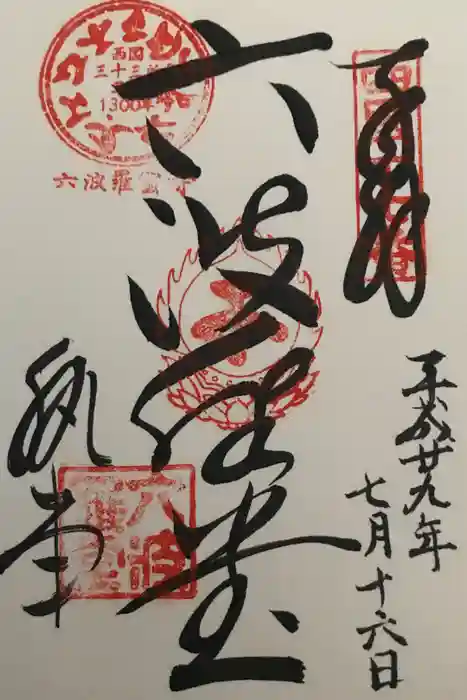 奉拝
平成廿九年
七月十六日
六波羅堂
執事
西国
三十三所
1300年
六波羅蜜寺
六波
羅堂